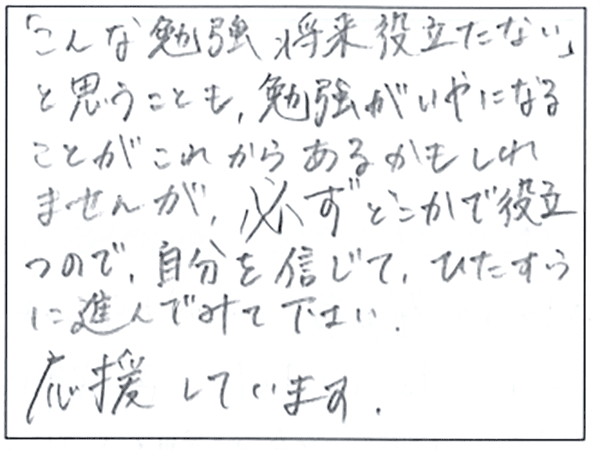 「こんな勉強、将来役立たない」
と思うことも、勉強がいやになる
ことがこれからあるかもしれ
ませんが、必ずどこかで役立
つので、自分を信じて、ひたすら
に進んでみて下さい.
応援しています.